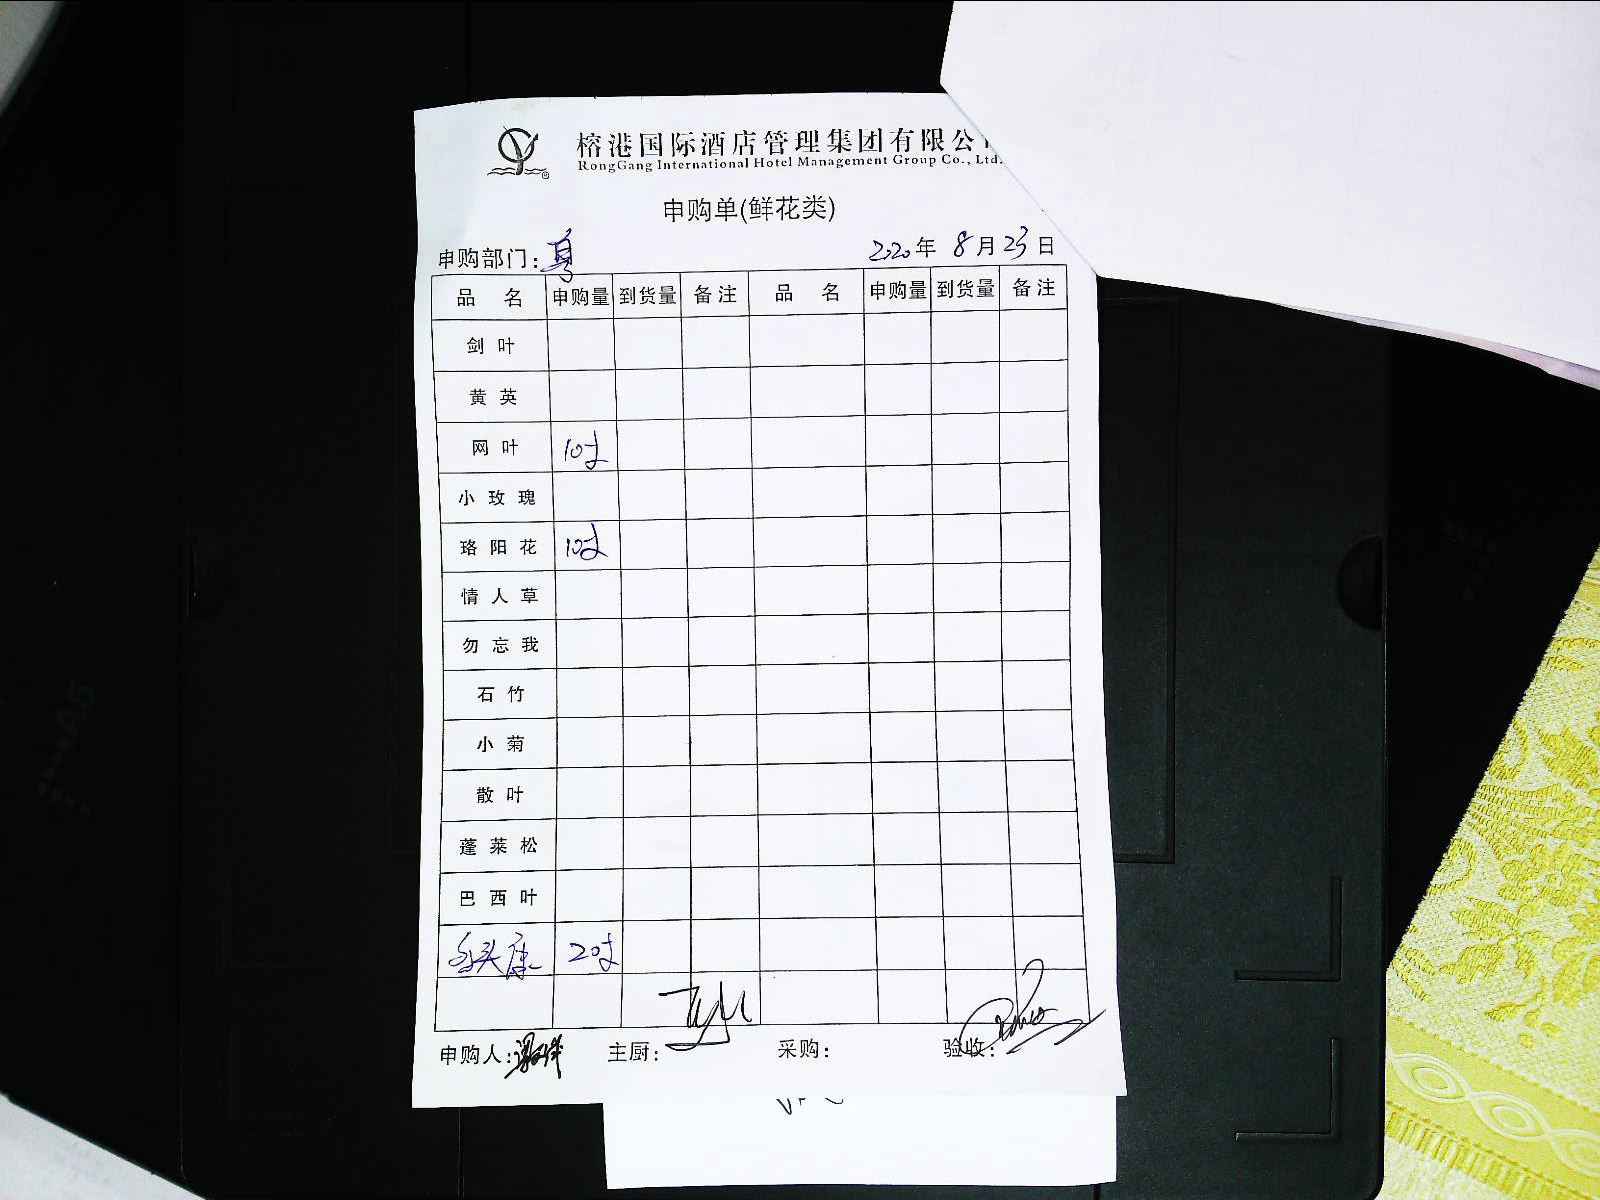 榕港国际酒店管理集团有限公
RongGang International Hotel Management Group Co., Ltd.
申购单(鲜花类)
申购部门: 粤 2020年 8月23日
品 名 申购量 到货量 备注 品 名 申购量 到货量 备注
剑叶
黄英
网叶 10扎
小玫瑰
珞阳花 10扎
情人草
勿忘我
石竹
小菊
散叶
蓬莱松
巴西叶
2扎
申购人: 主厨: 采购: 验收:
A5